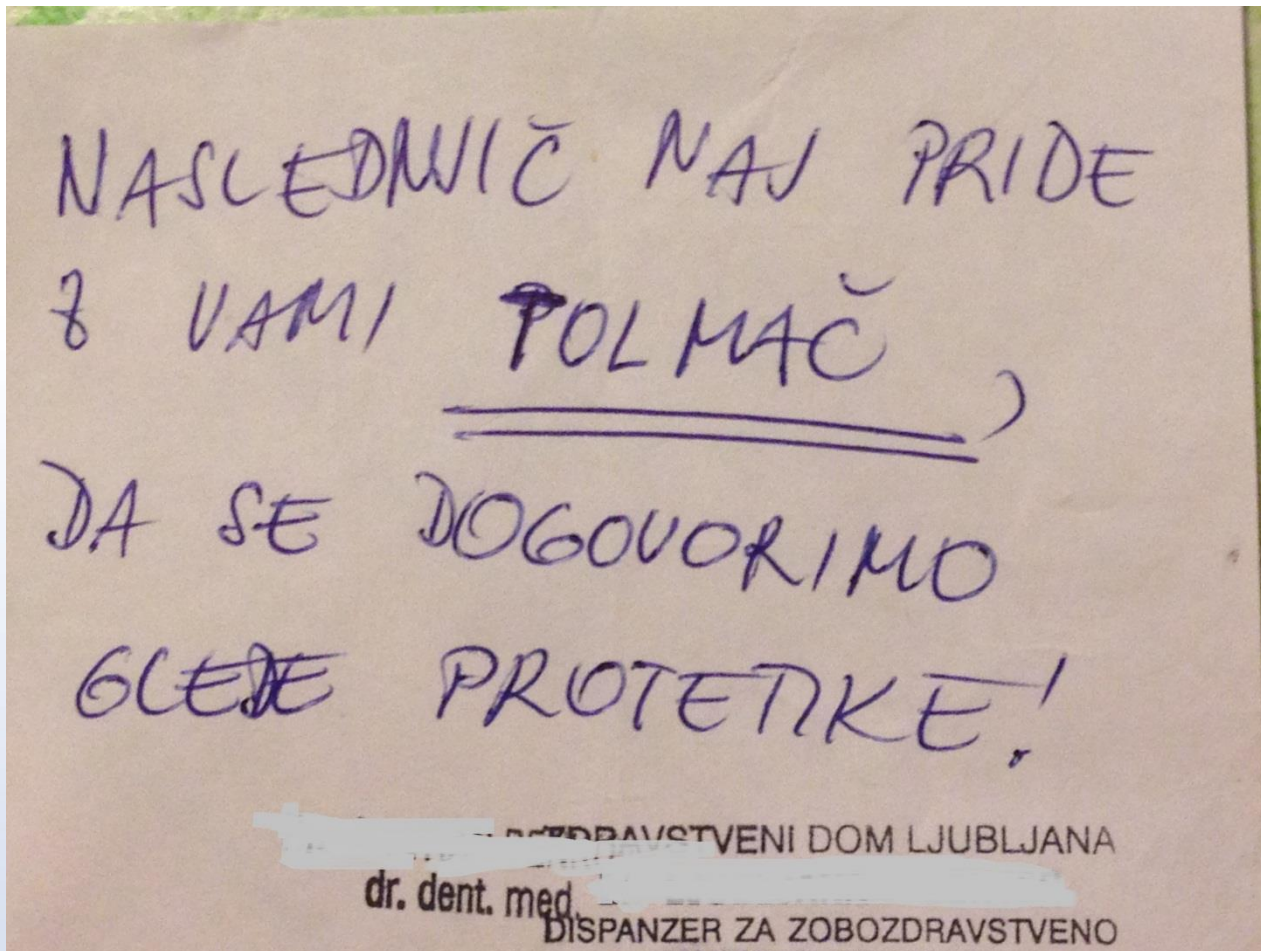 NASLEDNJIČ NAJ PRIDE
Z VAMI TOLMAČ,
DA SE DOGOVORIMO
GLEDE PROTETIKE!
ZDRAVSTVENI DOM LJUBLJANA
dr. dent. med.
DISPANZER ZA ZOBOZDRAVSTVENO